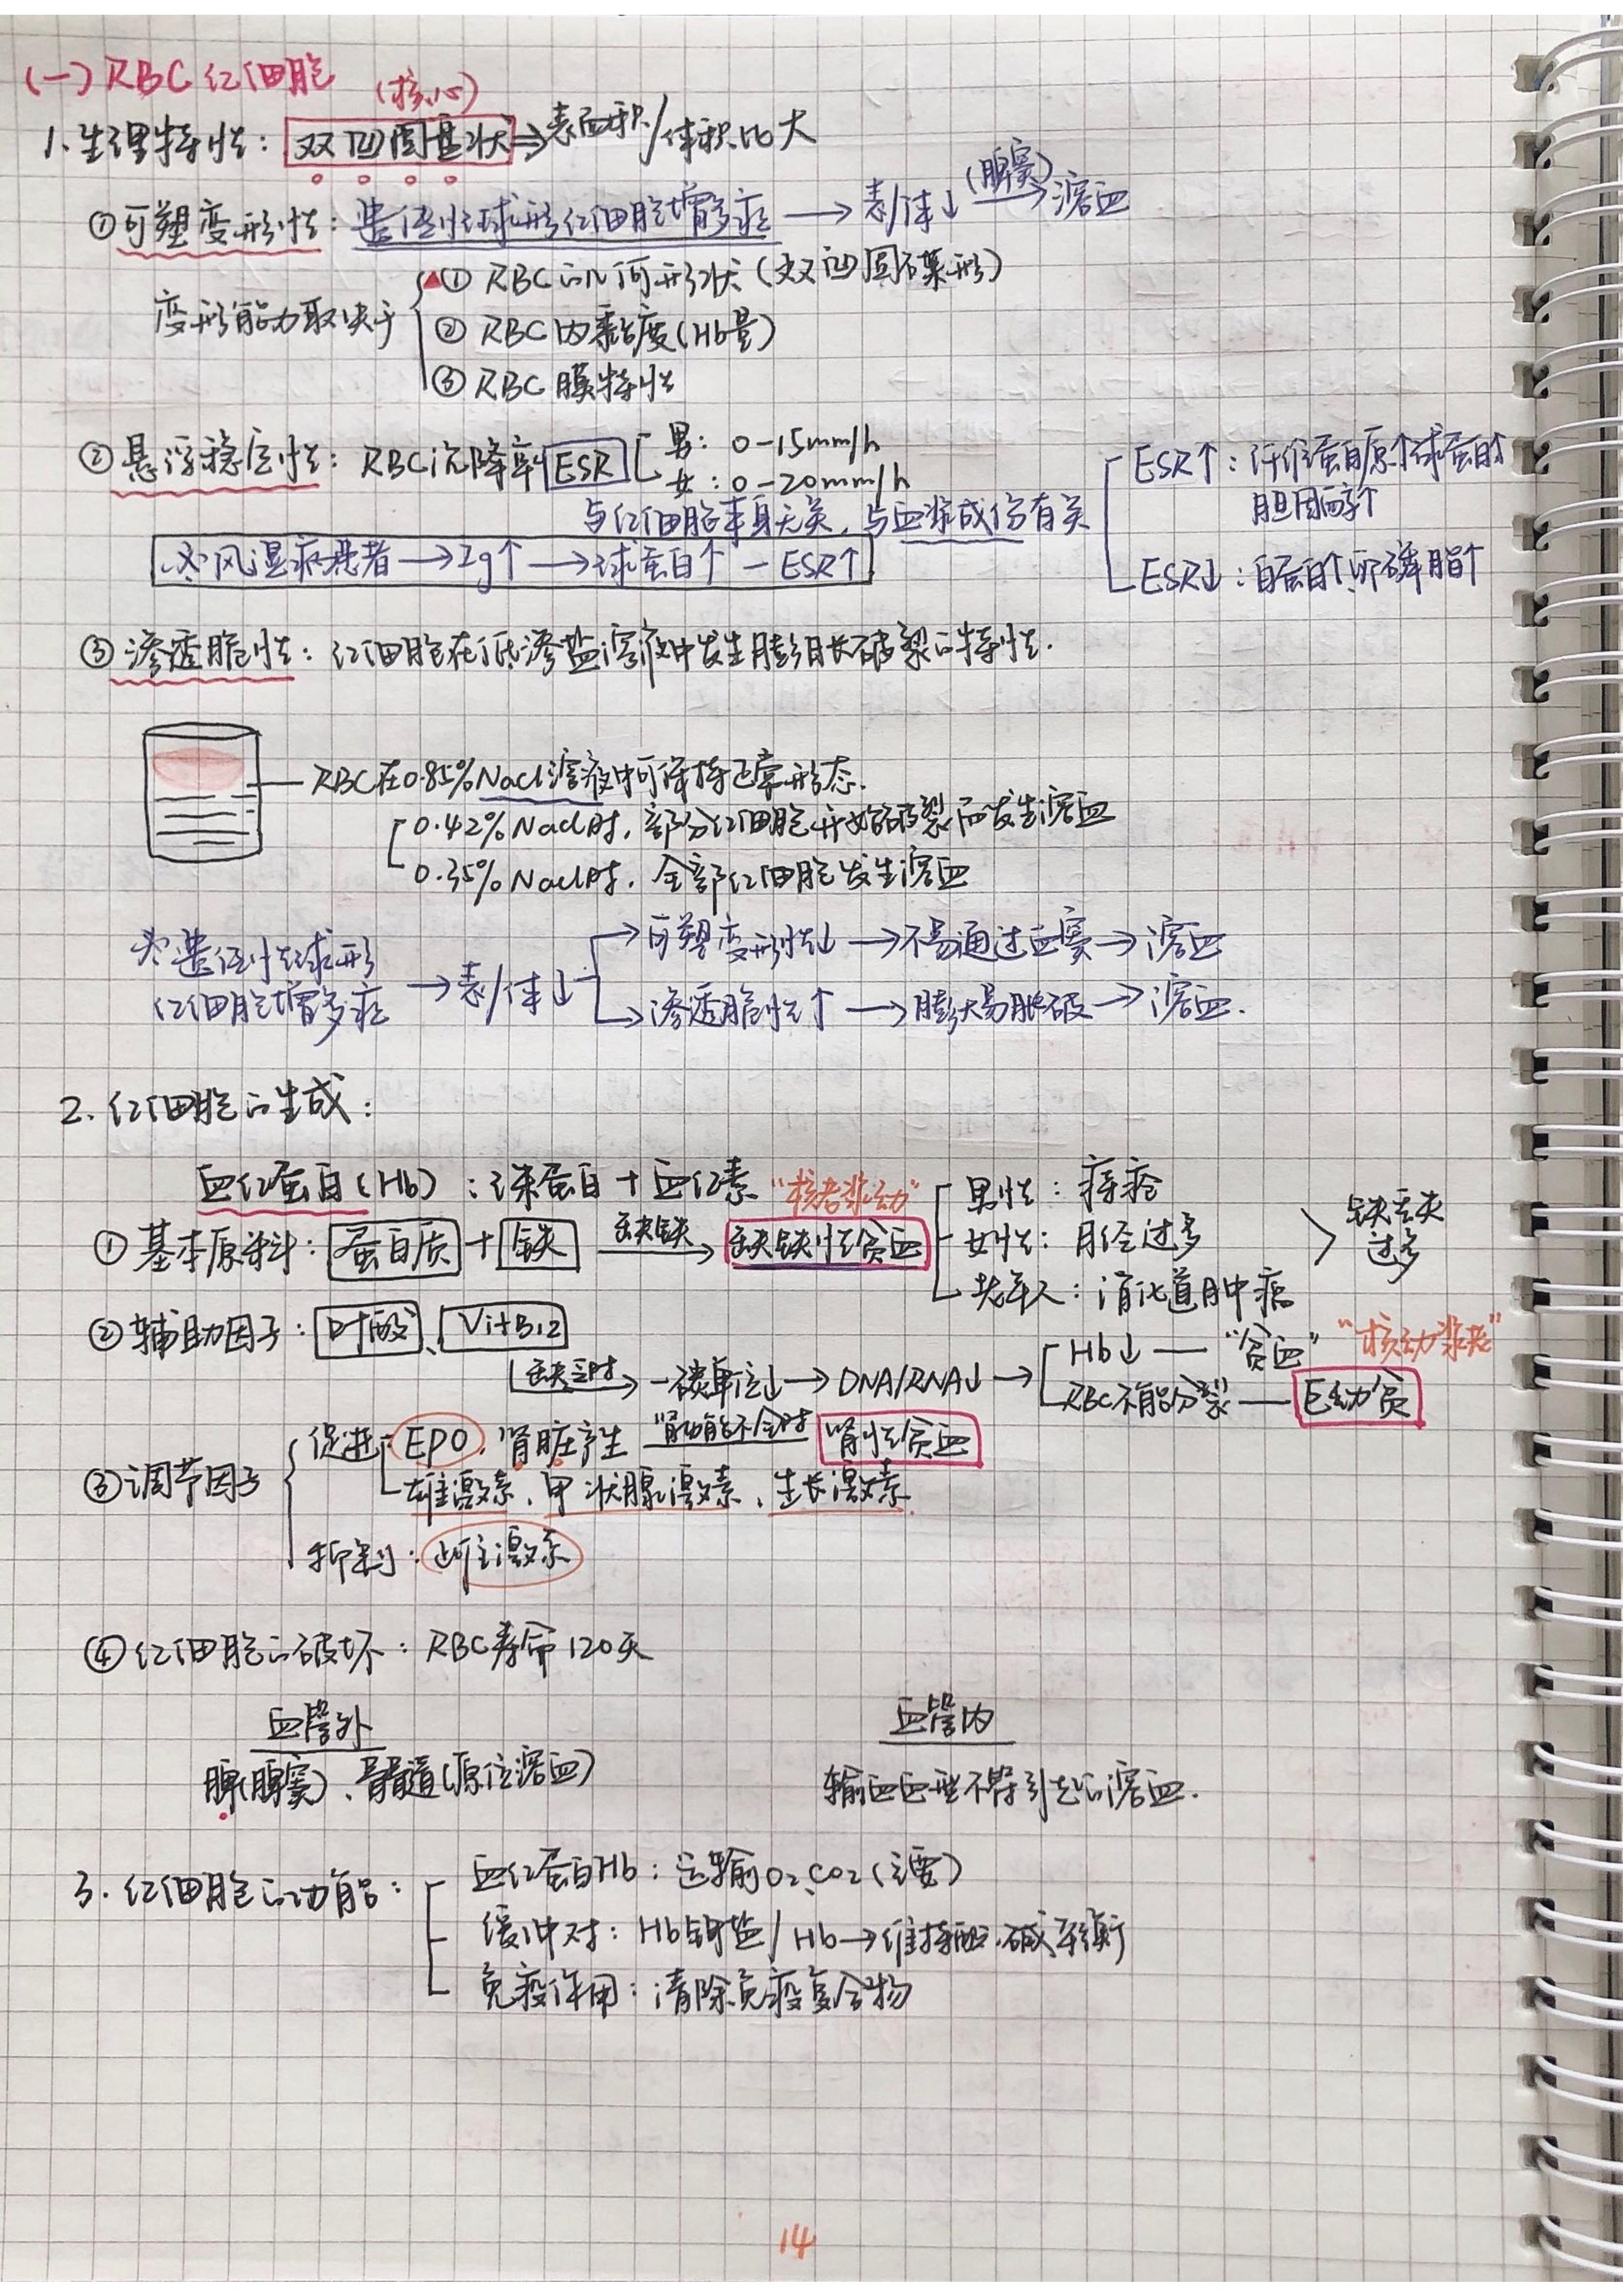 (一) RBC 红细胞
(核心)
1. 生理特性: 双凹圆盘状 ⇒ 表面积/体积比大
①可塑变形性: 遗传性球形红细胞增多症 → 表/体↓ (脾窦)→ 溶血
变形能力取决于
① RBC的几何形状 (双凹圆碟形)
② RBC内黏度 (Hb量)
③ RBC膜特性
②悬浮稳定性: RBC沉降率 ESR
男: 0-15mm/h
女: 0-20mm/h
与红细胞本身无关, 与血浆成份有关
ESR↑: 纤维蛋白原↑球蛋白↑
胆固醇↑
ESR↓: 白蛋白↑、卵磷脂↑
风湿病患者 → Ig↑ → 球蛋白↑ — ESR↑
③渗透脆性: 红细胞在低渗盐溶液中发生膨胀破裂的特性.
RBC在0.85%NaCl溶液中可保持正常形态.
0.42% NaCl时, 部分红细胞开始破裂而发生溶血
0.35% NaCl时, 全部红细胞发生溶血
遗传性球形
红细胞增多症 → 表/体↓
→可塑变形性↓ → 不易通过血窦 → 溶血
→渗透脆性↑ → 膨大易胀破 → 溶血.
2. 红细胞的生成:
血红蛋白 (Hb): 珠蛋白 + 血红素
"核老浆幼"
①基本原料: 蛋白质 + 铁 缺铁→ 缺铁性贫血
男性: 痔疮
女性: 月经过多
老年人: 消化道肿瘤
铁丢失
过多
②辅助因子: 叶酸、VitB12
缺乏时→ 一碳单位↓ → DNA/RNA↓ →
Hb↓ — "贫血" "核幼浆老"
RBC不能分裂 — 巨幼贫
③调节因子
促进 EPO, 肾脏产生 肾功能不全时 肾性贫血
雄激素、甲状腺激素、生长激素.
抑制: 雌激素
④红细胞的破坏: RBC寿命120天
血管外
脾(脾窦)、骨髓(原位溶血)
血管内
输血血型不符引起的溶血.
3. 红细胞的功能:
血红蛋白Hb: 运输O₂、CO₂ (主要)
缓冲对: Hb钾盐/Hb → 维持酸、碱平衡
免疫作用: 清除免疫复合物
14